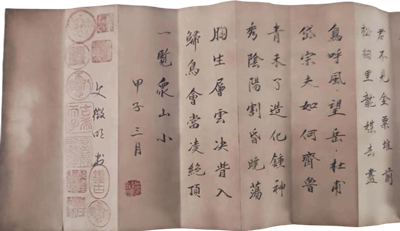 君不見金粟堆前
松柏里龍媒去盡
鳥呼風·望岳·杜甫
岱宗夫如何齊魯
青未了造化鍾神
秀陰陽割昏曉蕩
胸生層雲決眥入
歸鳥會當凌絕頂
一覽衆山小
甲子三月
文徵明書